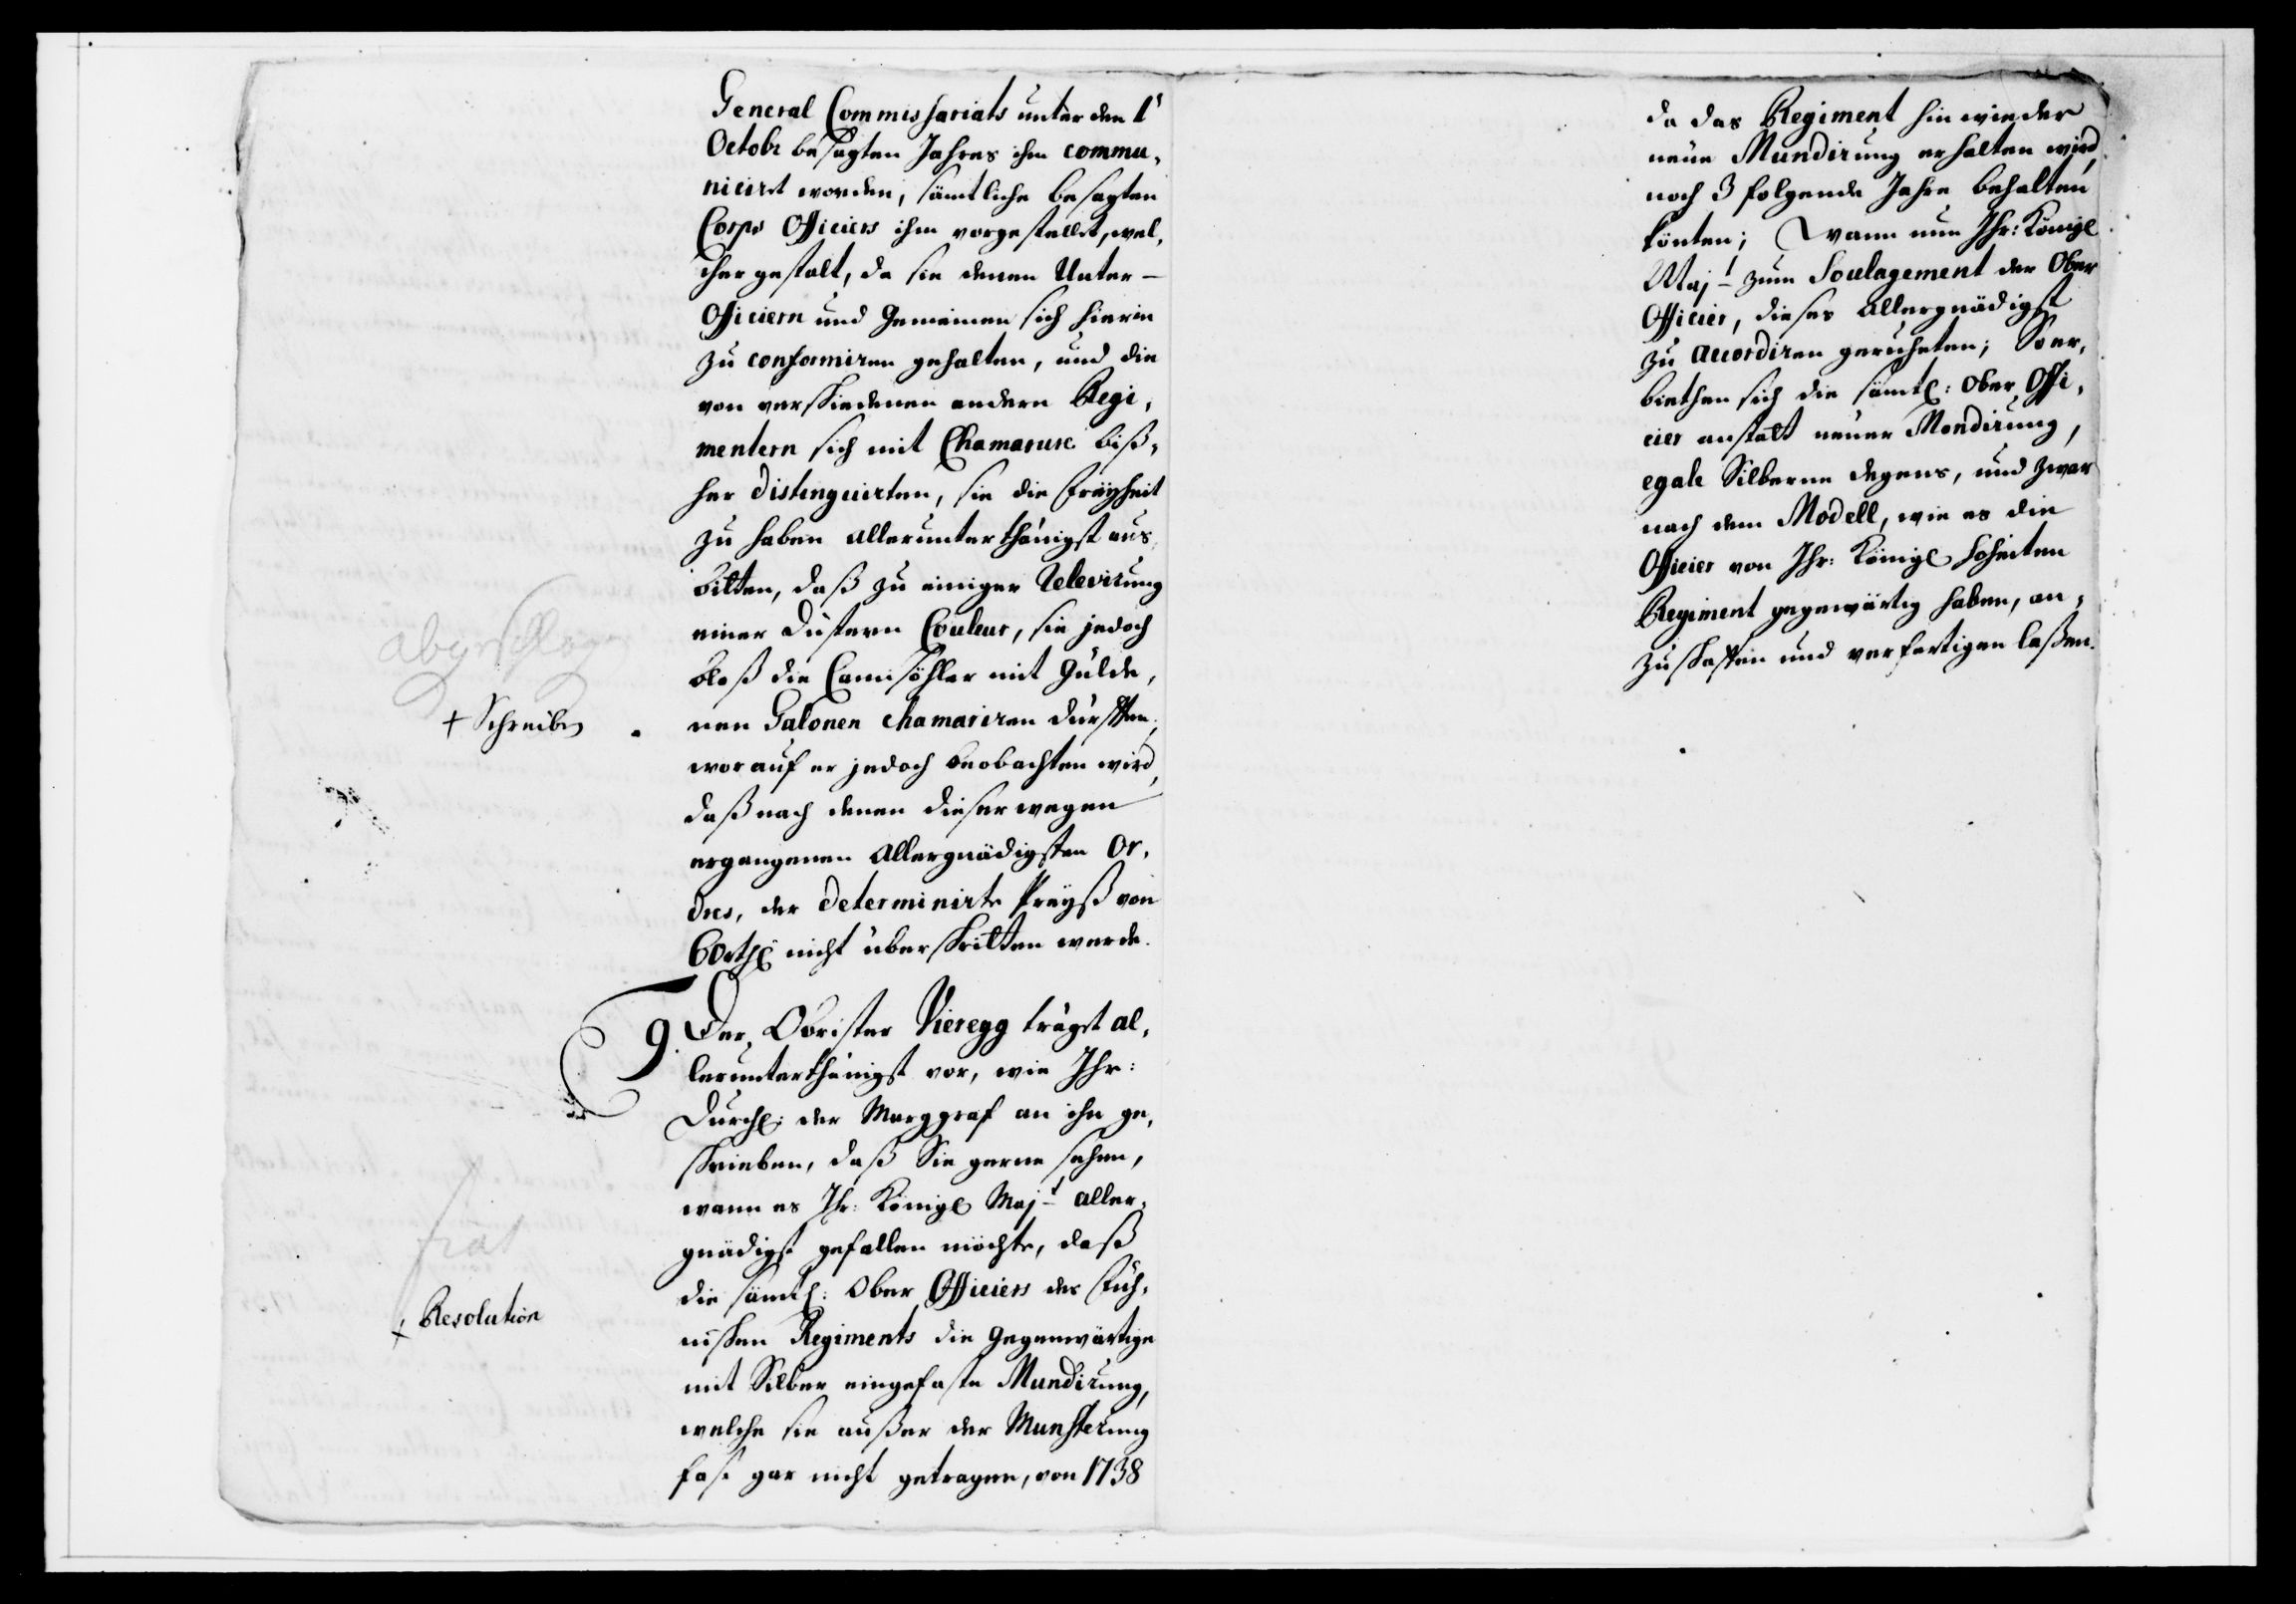 General Commissariats unter den 1t
Octobr besagten Jahres ihm commu,
niciret worden, sämtliche besagten
Corps Officiers ihm vorgestellet, wel,
cher gestalt, da sie denen Unter-
Officiern und Gemeinen sich hierin
zu conformiren gehalten, und die
von verschiedenen andern Regi,
mentern sich mit Chamarure biß,
her distinguirten, sie die Freyheit
zu haben allerunterthänigst aus,
bitten, daß zu einiger Relevirung
einer dustern Couleur, sie jedoch
bloß die Camisöhler mit Gülde,
nen Galonen chamariren durfften,
worauf er jedoch beobachten wird,
daß nach denen dieserwegen
ergangenen Allergnädigsten Or,
dres, der determinirte Preyß von
60 rthl nicht überschritten werde.
abgeschlagen
+ Schreiben
9. Der Obrister Vieregg träget al,
lerunterthänigst vor, wie Ihr:
Durchl: der Marggraf an ihn ge,
schrieben, daß Sie gerne sehen,
wann es Ihr: Königl Majt aller,
gnädigst gefallen möchte, daß
die sämtl: Ober Officiers des Füh,
nischen Regiments die gegenwärtige
mit Silber eingefaste Mundirung,
welche sie außer der Munsterung
fast gar nicht getragen, von 1738
fiat
+ Resolution
da das Regiment hinwieder
neue Mundirung erhalten wird,
noch 3 folgende Jahre behalten
könten; Wann nun Ihr: Königl
Majt zum Soulagement der Ober
Officier, dieses Allergnädigst
zu accordiren geruheten; So er,
biethen sich die sämtl: Ober Offi,
cier anstatt neuer Mondirung,
egale Silberne degens, und zwar
nach dem Modell, wie es die
Officier von Ihr: Königl Hoheiten
Regiment gegenwärtig haben, an,
zuschaffen und verfertigen laßen.